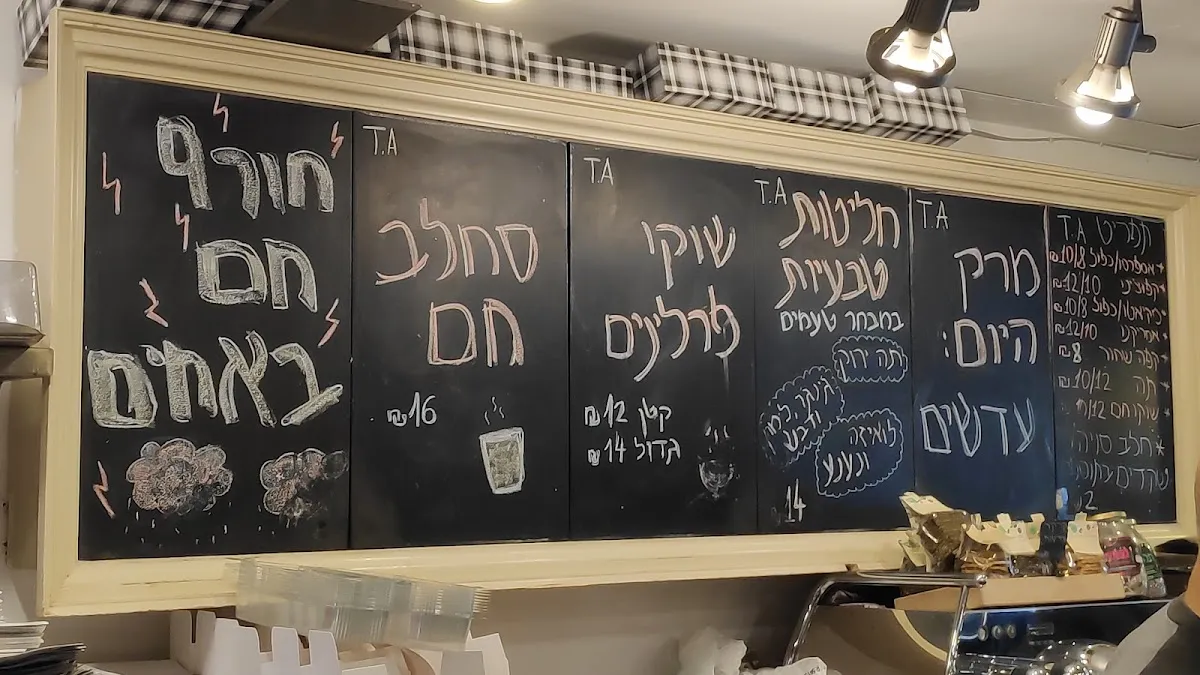 חורף
חם
באחים
T.A
סחלב
חם
₪16
T.A
שוקו
פרלינים
קטן 12 ₪
גדול 14 ₪
T.A
חליטות
טבעיות
במבחר טעמים
תה ירוק
לואיזה
ונענע
14
T.A
מרק
היום:
עדשים
תפריט T.A
* אספרסו/כפול 10/8 ₪
* קפוצ'ינו 12/10 ₪
* מקיאטו/כפול 10/8 ₪
* אמריקנו 12/10 ₪
* קפה שחור 8 ₪
* תה 10/12 ₪
* שוקו חם 12/
* חלב סויה/
שקדים
2